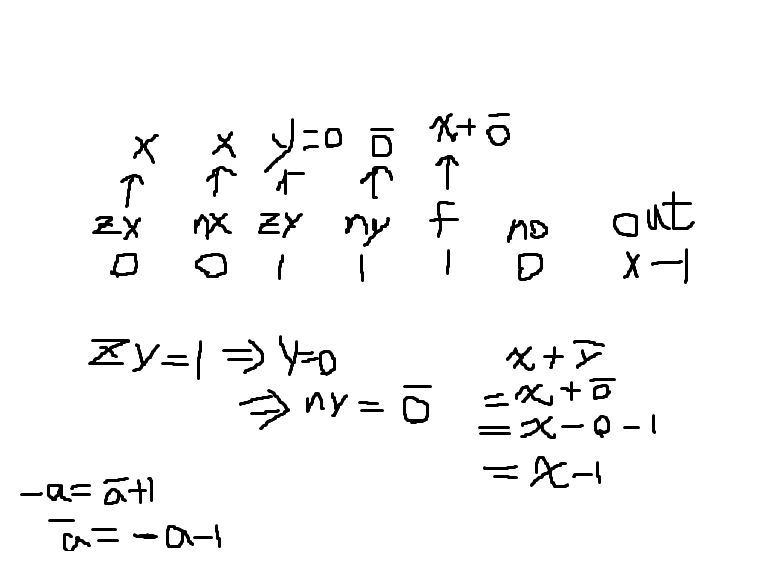 x x y=0 0̅ x+0̅
↑ ↑ ↑ ↑ ↑
zx nx zy ny f no out
0 0 1 1 1 0 x-1
zy=1 ⇒ y=0
⇒ ny = 0̅
x+y̅
=x+0̅
=x-0-1
=x-1
-a=a̅+1
a̅=-a-1